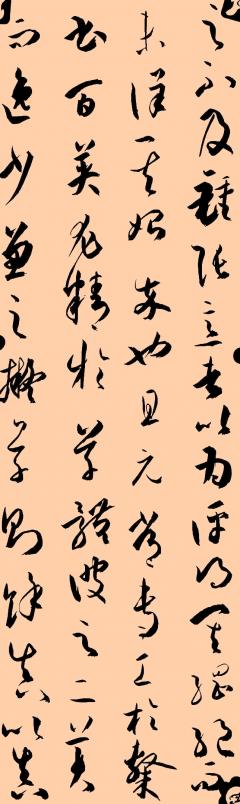 之不及鍾張意者以為評得其綱紀而
未詳其始卒也且元常專工於隸
書百英尤精於草體彼之二美
而逸少兼之擬草則餘真比真